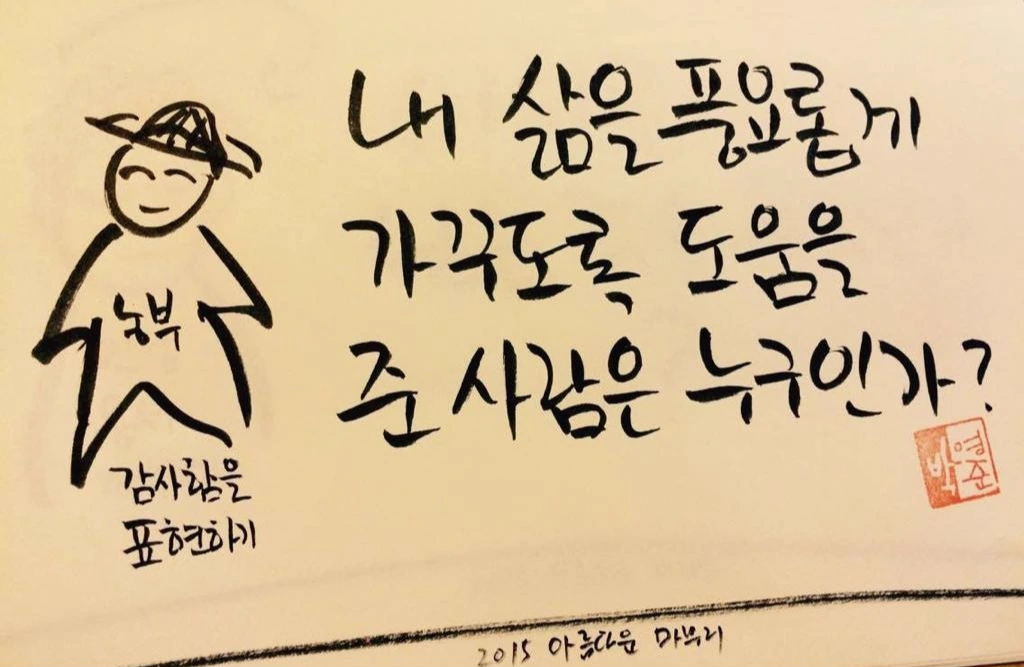 내 삶을 풍요롭게
가꾸도록 도움을
준 사람은 누구인가?
농부
감사함을
표현하기
박영준
2015 아름다운 마무리